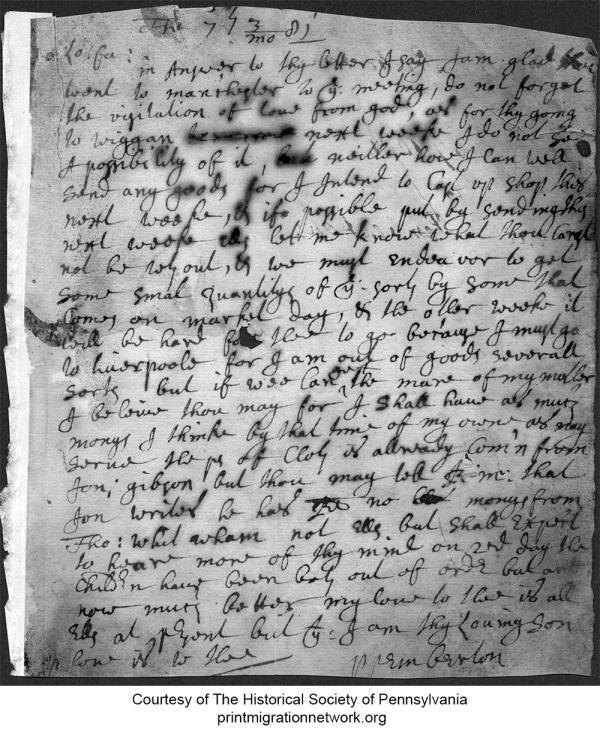 The 7th 3/mo 81
Lo: fa:
in Answer to thy letter I say I am glad thou
went to manchester to ye: meeting, do not forget
the visitation of love from god, as for thy going
to wiggan next weeke I do not see
A possibility of it, neither how I can well
send any goods for I Intend to Cast up shop this
next weeke, & if possible put by sending this
next weeke let me know what thou
not be without, & we must Endeavor to get
some smal quantitys of ye: sorts by some that
Comes on market day, & the other weeke it
will be hard for thee to go because I must go
to Liverpoole for I am out of goods severall
sorts but if wee Can get the mare of my mother
I beleive thou may for I shall have as much
monys I thinke by that time of my owne as may
serve the ps of Cloth is allready Com'n from
Jon: gibson, but thou may tell that
Jon writes he has no monys from
Tho: not but shall Expect
to heare more of thy mind on 2ed day the
Childrn have been both out of ordr but are
now much better my love to thee is all
at psent but I am thy Loving son
love is to thee ppemberton
Courtesy of The Historical Society of Pennsylvania
printmigrationnetwork.org